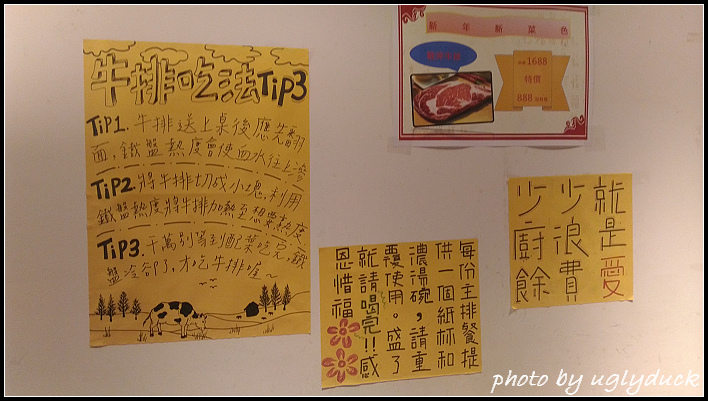 牛排吃法TiP3
TiP1. 牛排送上桌後應先翻
面,鐵盤熱度會使血水往上滲
TiP2. 將牛排切成小塊,利用
鐵盤熱度將牛排加熱至想要熱度
TiP3. 千萬別等到配菜吃完,鐵
盤冷卻了,才吃牛排喔~
新年新菜色
1688
特價
888
每份主排餐提
供一個紙杯和
濃湯碗,請重
覆使用。盛了
就請喝完!!感
恩惜福
就是愛
少浪費
少廚餘
photo by uglyduck